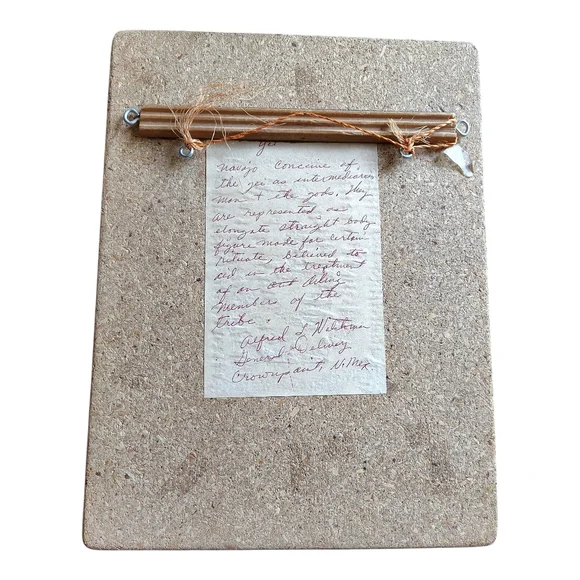 Yei
Navajo conceive of
the yei as intermediaries
man + the gods. They
are represented as
elongate straight body
figure made for certain
rituals, believed to
aid in the treatment
of an ailing
members of the
tribe.
Alfred L
General Delivery
Crownpoint, N. Mex.